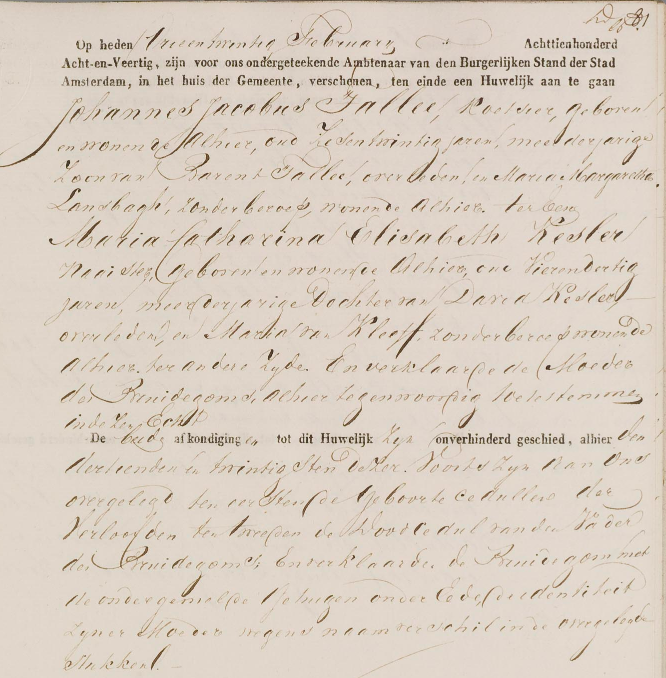 Op heden Drieentwintig February Achttienhonderd
Acht-en-Veertig, zijn voor ons ondergeteekende Ambtenaar van den Burgerlijken Stand der Stad
Amsterdam, in het huis der Gemeente, verschenen, ten einde een Huwelijk aan te gaan
Johannes Jacobus Fallee, Koetsier, geboren
en wonende Alhier, oud Zesentwintig jaren, meerderjarige
Zoon van Barent Fallee, overleden, en Maria Margaretha
Lansbagh, zonder beroep, wonende Alhier. ter Eenre
Maria Catharina Elisabeth Kesler
Naaister, geboren en wonende Alhier, oud Vierendertig
jaren, meerderjarige Dochter van David Kesler,
overleden, en Maria van Kleeff, zonder beroep wonende
Alhier, ter andere Zyde. En verklaarde de Moeder
des Bruidegoms, alhier tegenwoordig toetestemmen
in deze Echt
De beide afkondigingen tot dit Huwelijk Zyn onverhinderd geschied, alhier Den
dertienden en twintigsten dezer. Voorts zyn aan Ons
overgelegd ten eersten de Geboorte cedullen der
Verloofden ten tweeden de Doodcedul van den Vader
des Bruidegoms. En verklaarde de Bruidegom met
de ondergemelde Getuigen onder Eede, de identiteit
zyner Moeder wegens naamverschil in de overgelegde
Stukken.